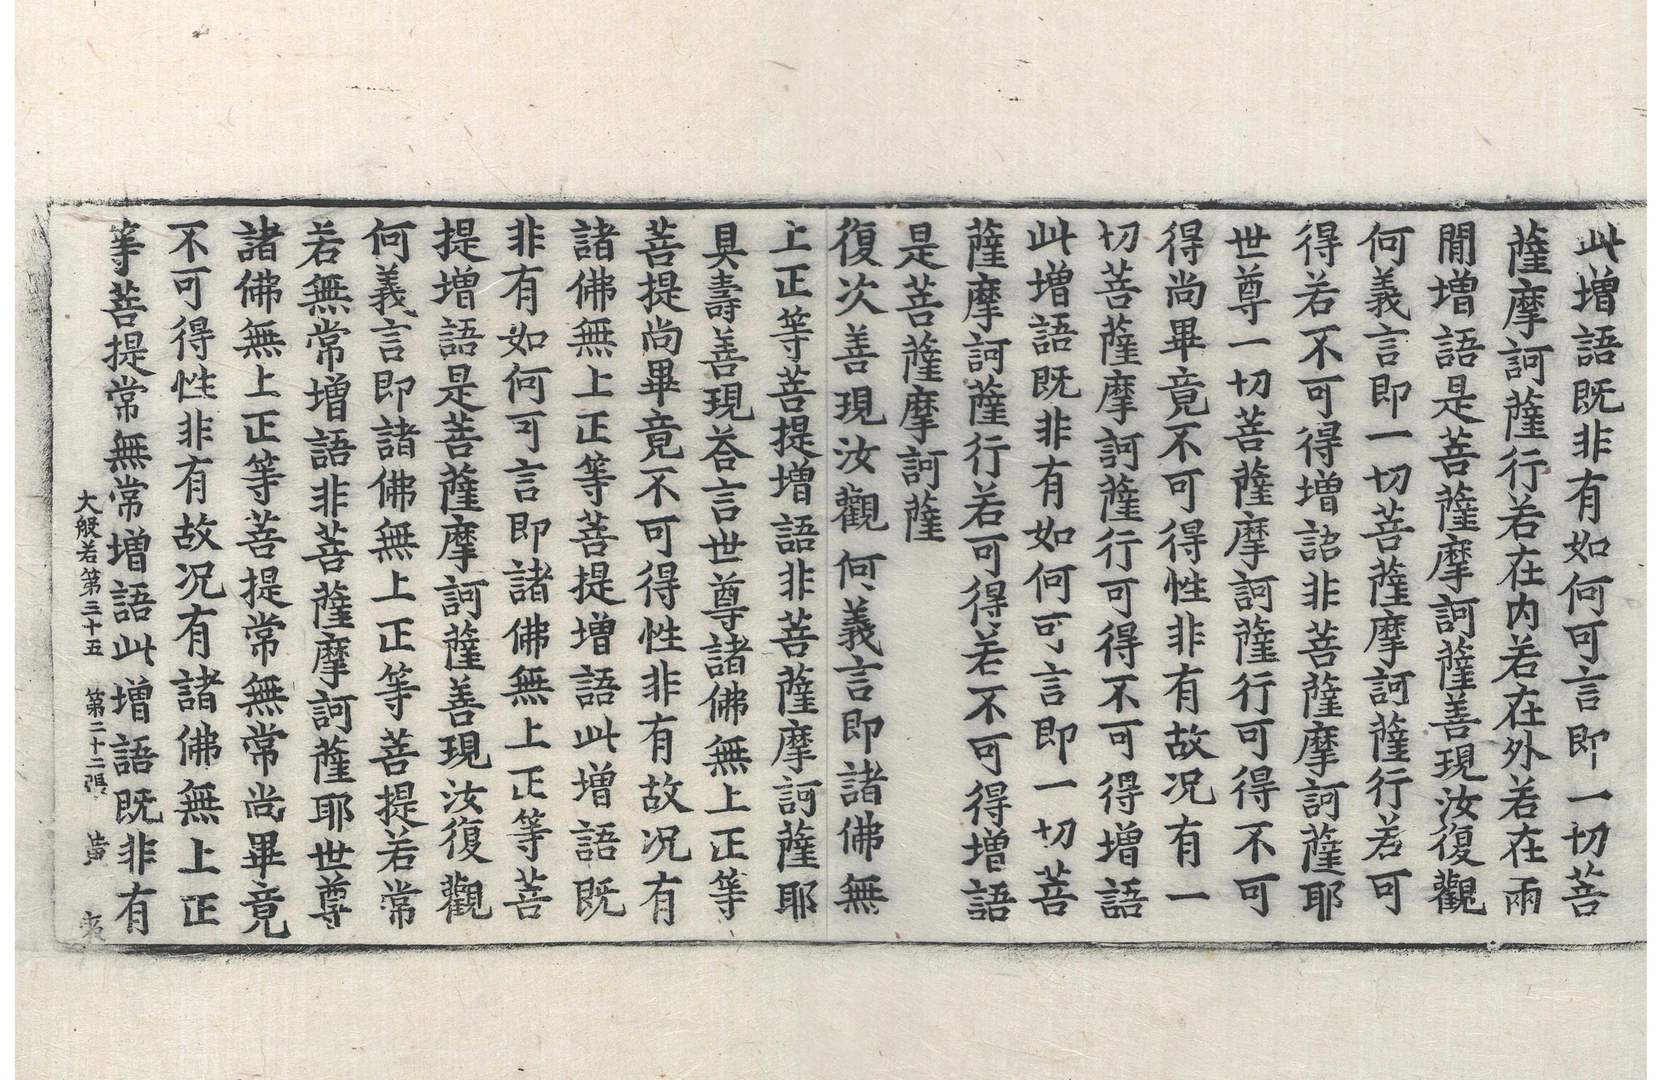 此增語旣非有如何可言即一切菩
薩摩訶薩行若在内若在外若在兩
閒增語是菩薩摩訶薩善現汝復觀
何義言即一切菩薩摩訶薩行若可
得若不可得增語非菩薩摩訶薩耶
世尊一切菩薩摩訶薩行可得不可
得尚畢竟不可得性非有故况有一
切菩薩摩訶薩行可得不可得增語
此增語旣非有如何可言即一切菩
薩摩訶薩行若可得若不可得增語
是菩薩摩訶薩
復次善現汝觀何義言即諸佛無
上正等菩提增語非菩薩摩訶薩耶
具壽善現荅言世尊諸佛無上正等
菩提尚畢竟不可得性非有故况有
諸佛無上正等菩提增語此增語旣
非有如何可言即諸佛無上正等菩
提增語是菩薩摩訶薩善現汝復觀
何義言即諸佛無上正等菩提若常
若無常增語非菩薩摩訶薩耶世尊
諸佛無上正等菩提常無常尚畢竟
不可得性非有故况有諸佛無上正
等菩提常無常增語此增語旣非有
大般若第三十五 第二十二張 黃